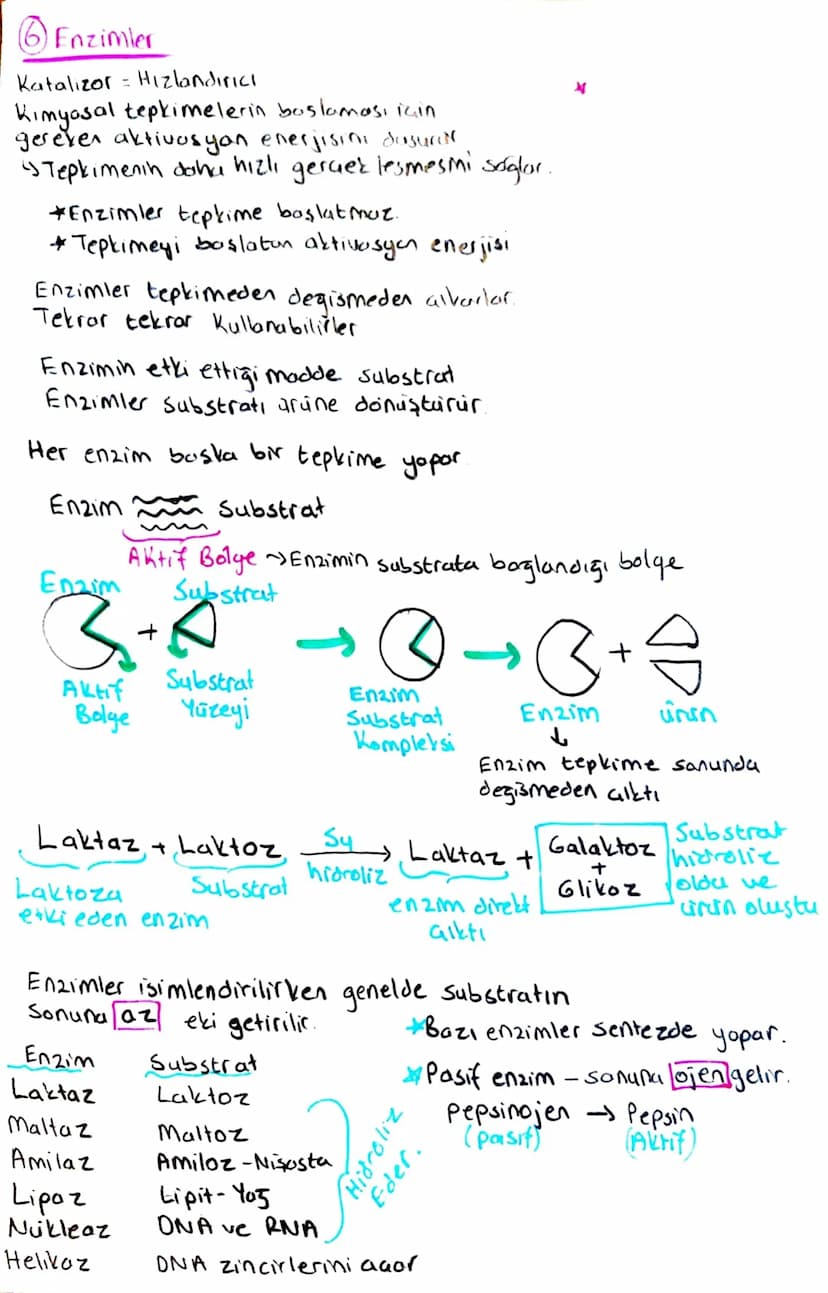 6 Enzimler
Katalizör = Hızlandırıcı
Kimyasal tepkimelerin başlaması için
gereken aktivasyon enerjisini düşürür
↳ Tepkimenin daha hızlı gerçekleşmesini sağlar.
*Enzimler tepkime başlatmaz.
*Tepkimeyi başlatan aktivasyon enerjisi
Enzimler tepkimeden değişmeden çıkarlar.
Tekrar tekrar kullanabilirler
Enzimin etki ettiği madde substrat
Enzimler substratı ürüne dönüştürür.
Her enzim başka bir tepkime yapar
Enzim Substrat
Aktif Bölge → Enzimin substrata bağlandığı bölge
Enzim Substrat
+ → → +
Aktif Bölge
Substrat Yüzeyi
Enzim Substrat Kompleksi
Enzim
ürün
↓
Enzim tepkime sonunda
değişmeden çıktı
Laktaz + Laktoz Su hidroliz → Laktaz + Galaktoz + Glikoz
Laktoza
etki eden enzim
Substrat
enzim direkt
çıktı
Substrat
hidroliz
oldu ve
ürün oluştu
Enzimler isimlendirilirken genelde substratın
sonuna az eki getirilir.
Enzim Substrat
Laktaz Laktoz
Maltaz Maltoz
Amilaz Amiloz - Nişasta
Lipaz Lipit - Yağ
Nükleaz DNA ve RNA
Helikaz DNA zincirlerini açar
Hidroliz
Eder.
*Bazı enzimler sentezde yapar.
*Pasif enzim - sonuna ojen gelir.
Pepsinojen → Pepsin
(pasif) (Aktif)